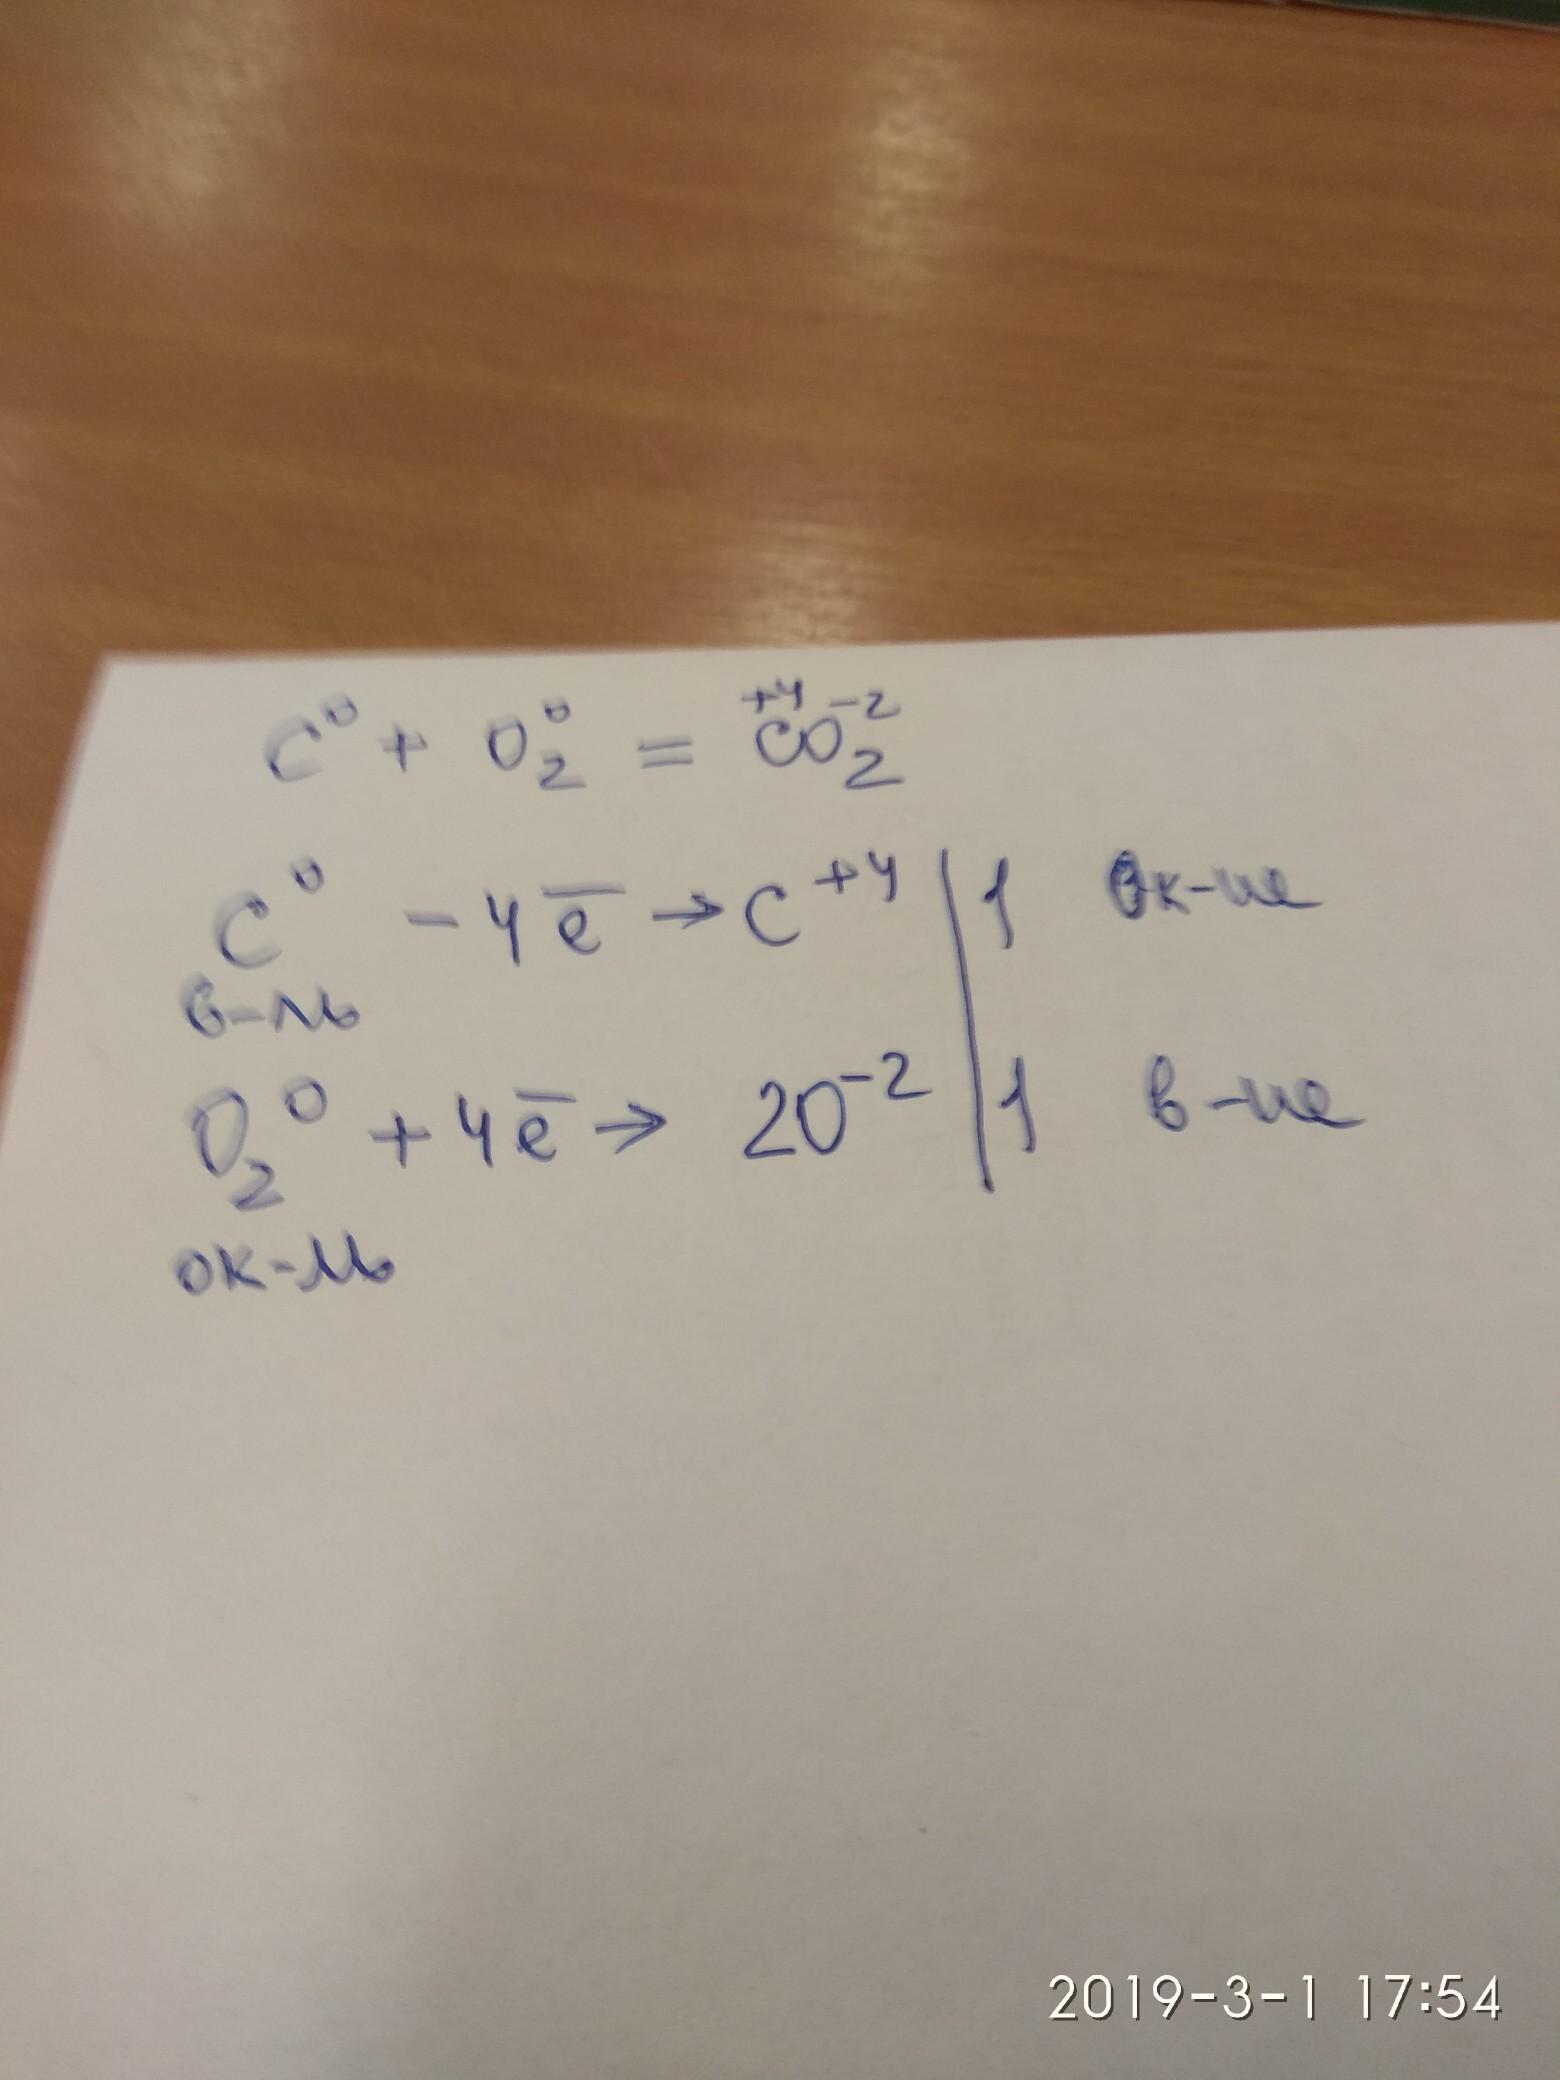 C⁰ + O₂⁰ = C⁺⁴O₂⁻²
C⁰ - 4e̅ → C⁺⁴ | 1 Ок-ие
в-ль
O₂⁰ + 4e̅ → 2O⁻² | 1 в-ие
ок-ль
2019-3-1 17:54